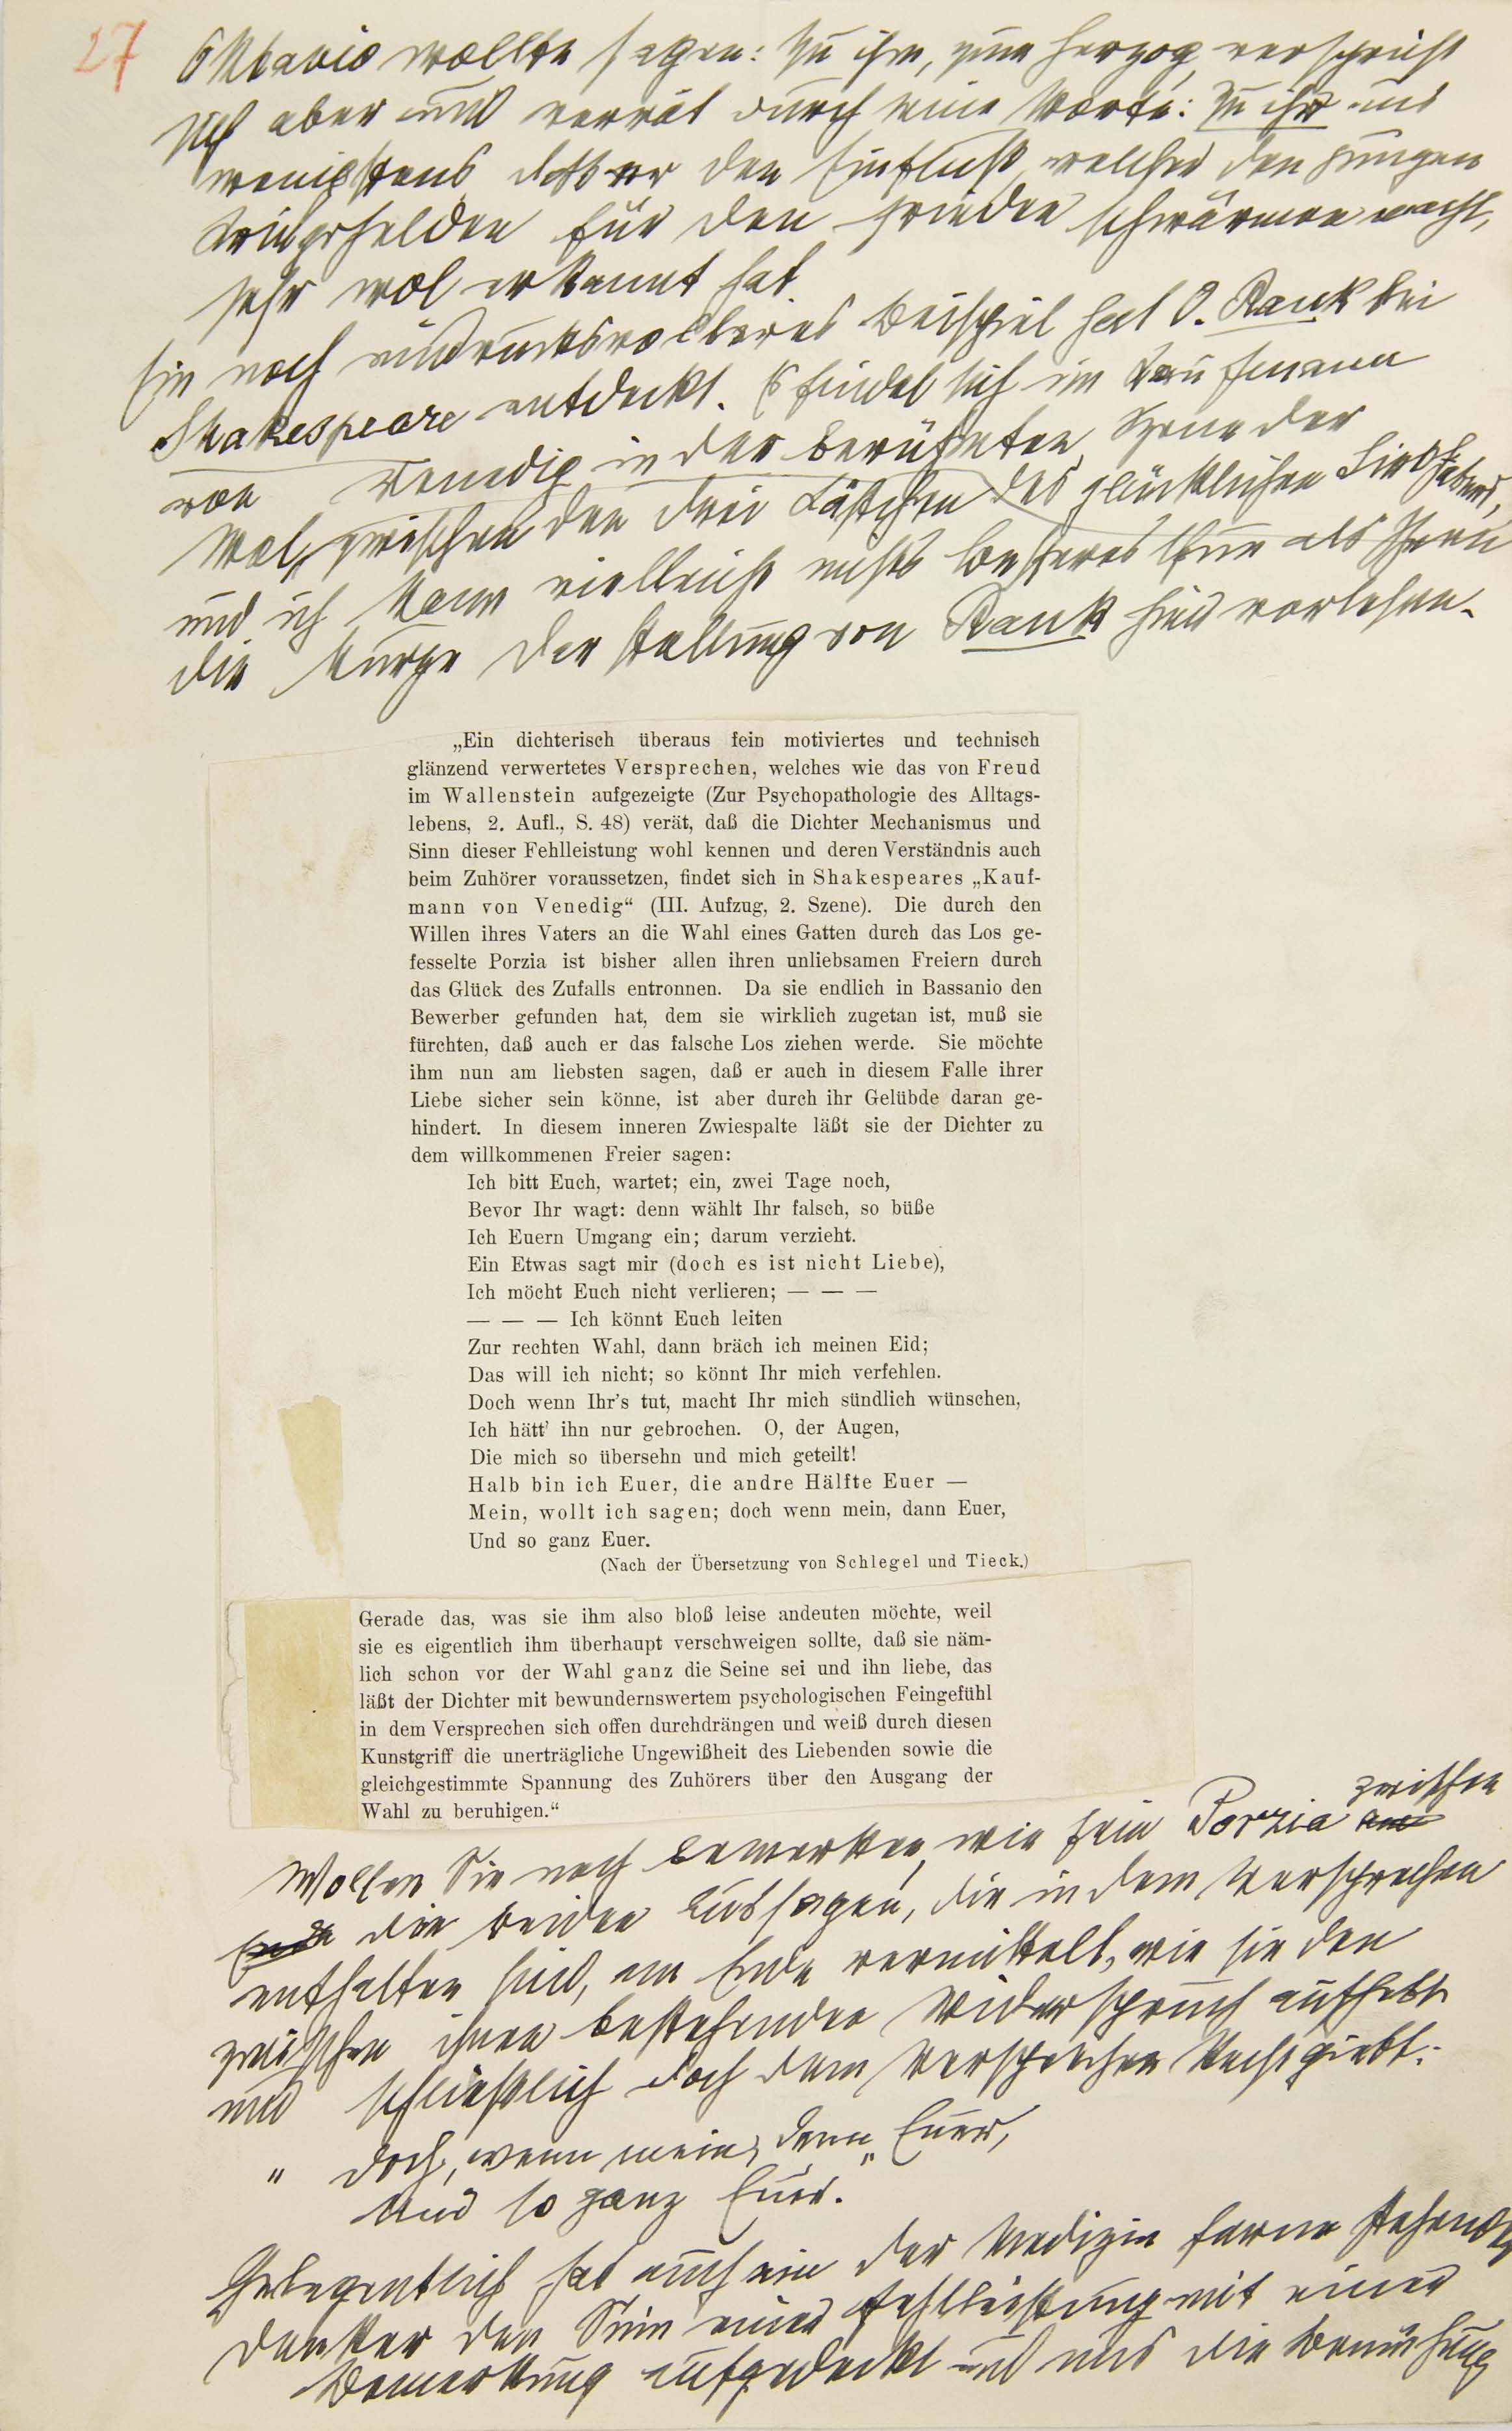 27
Oktavio wollte sagen: Zu ihm, zum Herzog, verspricht
sich aber und verrät durch seine Worte: zu ihr uns
wenigstens, daß er den Einfluß, welcher den jungen
Kriegshelden für den Frieden schwärmen macht,
sehr wol erkannt hat.
Ein noch eindrucksvolleres Beispiel hat O. Rank bei
Shakespeare entdeckt. Es findet sich im Kaufmann
von Venedig in der berühmten Szene der
Wahl zwischen den drei Kästchen des glücklichen Liebhabers,
und ich kann vielleicht nichts besseres thun als Ihnen
die kurze Darstellung von Rank hier vorlesen.
„Ein dichterisch überaus fein motiviertes und technisch
glänzend verwertetes Versprechen, welches wie das von Freud
im Wallenstein aufgezeigte (Zur Psychopathologie des Alltags-
lebens, 2. Aufl., S. 48) verät, daß die Dichter Mechanismus und
Sinn dieser Fehlleistung wohl kennen und deren Verständnis auch
beim Zuhörer voraussetzen, findet sich in Shakespeares „Kauf-
mann von Venedig“ (III. Aufzug, 2. Szene). Die durch den
Willen ihres Vaters an die Wahl eines Gatten durch das Los ge-
fesselte Porzia ist bisher allen ihren unliebsamen Freiern durch
das Glück des Zufalls entronnen. Da sie endlich in Bassanio den
Bewerber gefunden hat, dem sie wirklich zugetan ist, muß sie
fürchten, daß auch er das falsche Los ziehen werde. Sie möchte
ihm nun am liebsten sagen, daß er auch in diesem Falle ihrer
Liebe sicher sein könne, ist aber durch ihr Gelübde daran ge-
hindert. In diesem inneren Zwiespalte läßt sie der Dichter zu
dem willkommenen Freier sagen:
Ich bitt Euch, wartet; ein, zwei Tage noch,
Bevor Ihr wagt: denn wählt Ihr falsch, so büße
Ich Euern Umgang ein; darum verzieht.
Ein Etwas sagt mir (doch es ist nicht Liebe),
Ich möcht Euch nicht verlieren; — — —
— — — Ich könnt Euch leiten
Zur rechten Wahl, dann bräch ich meinen Eid;
Das will ich nicht; so könnt Ihr mich verfehlen.
Doch wenn Ihr's tut, macht Ihr mich sündlich wünschen,
Ich hätt' ihn nur gebrochen. O, der Augen,
Die mich so übersehn und mich geteilt!
Halb bin ich Euer, die andre Hälfte Euer —
Mein, wollt ich sagen; doch wenn mein, dann Euer,
Und so ganz Euer.
(Nach der Übersetzung von Schlegel und Tieck.)
Gerade das, was sie ihm also bloß leise andeuten möchte, weil
sie es eigentlich ihm überhaupt verschweigen sollte, daß sie näm-
lich schon vor der Wahl ganz die Seine sei und ihn liebe, das
läßt der Dichter mit bewundernswertem psychologischen Feingefühl
in dem Versprechen sich offen durchdrängen und weiß durch diesen
Kunstgriff die unerträgliche Ungewißheit des Liebenden sowie die
gleichgestimmte Spannung des Zuhörers über den Ausgang der
Wahl zu beruhigen.“
Wollen Sie noch bemerken, wie fein Porzia am zwischen
Ende die beiden Aussagen, die in dem Versprechen
enthalten sind, am Ende vermittelt, wie sie den
zwischen ihnen bestehenden Widerspruch aufhebt
und schließlich doch dem Versprechen Recht giebt:
„ doch, wenn mein, dann Euer,
Und so ganz Euer. “
Gelegentlich hat auch ein der Medizin ferne stehender
Denker den Sinn einer Fehlleistung mit einer
Bemerkung aufgedeckt und uns die Bemühung